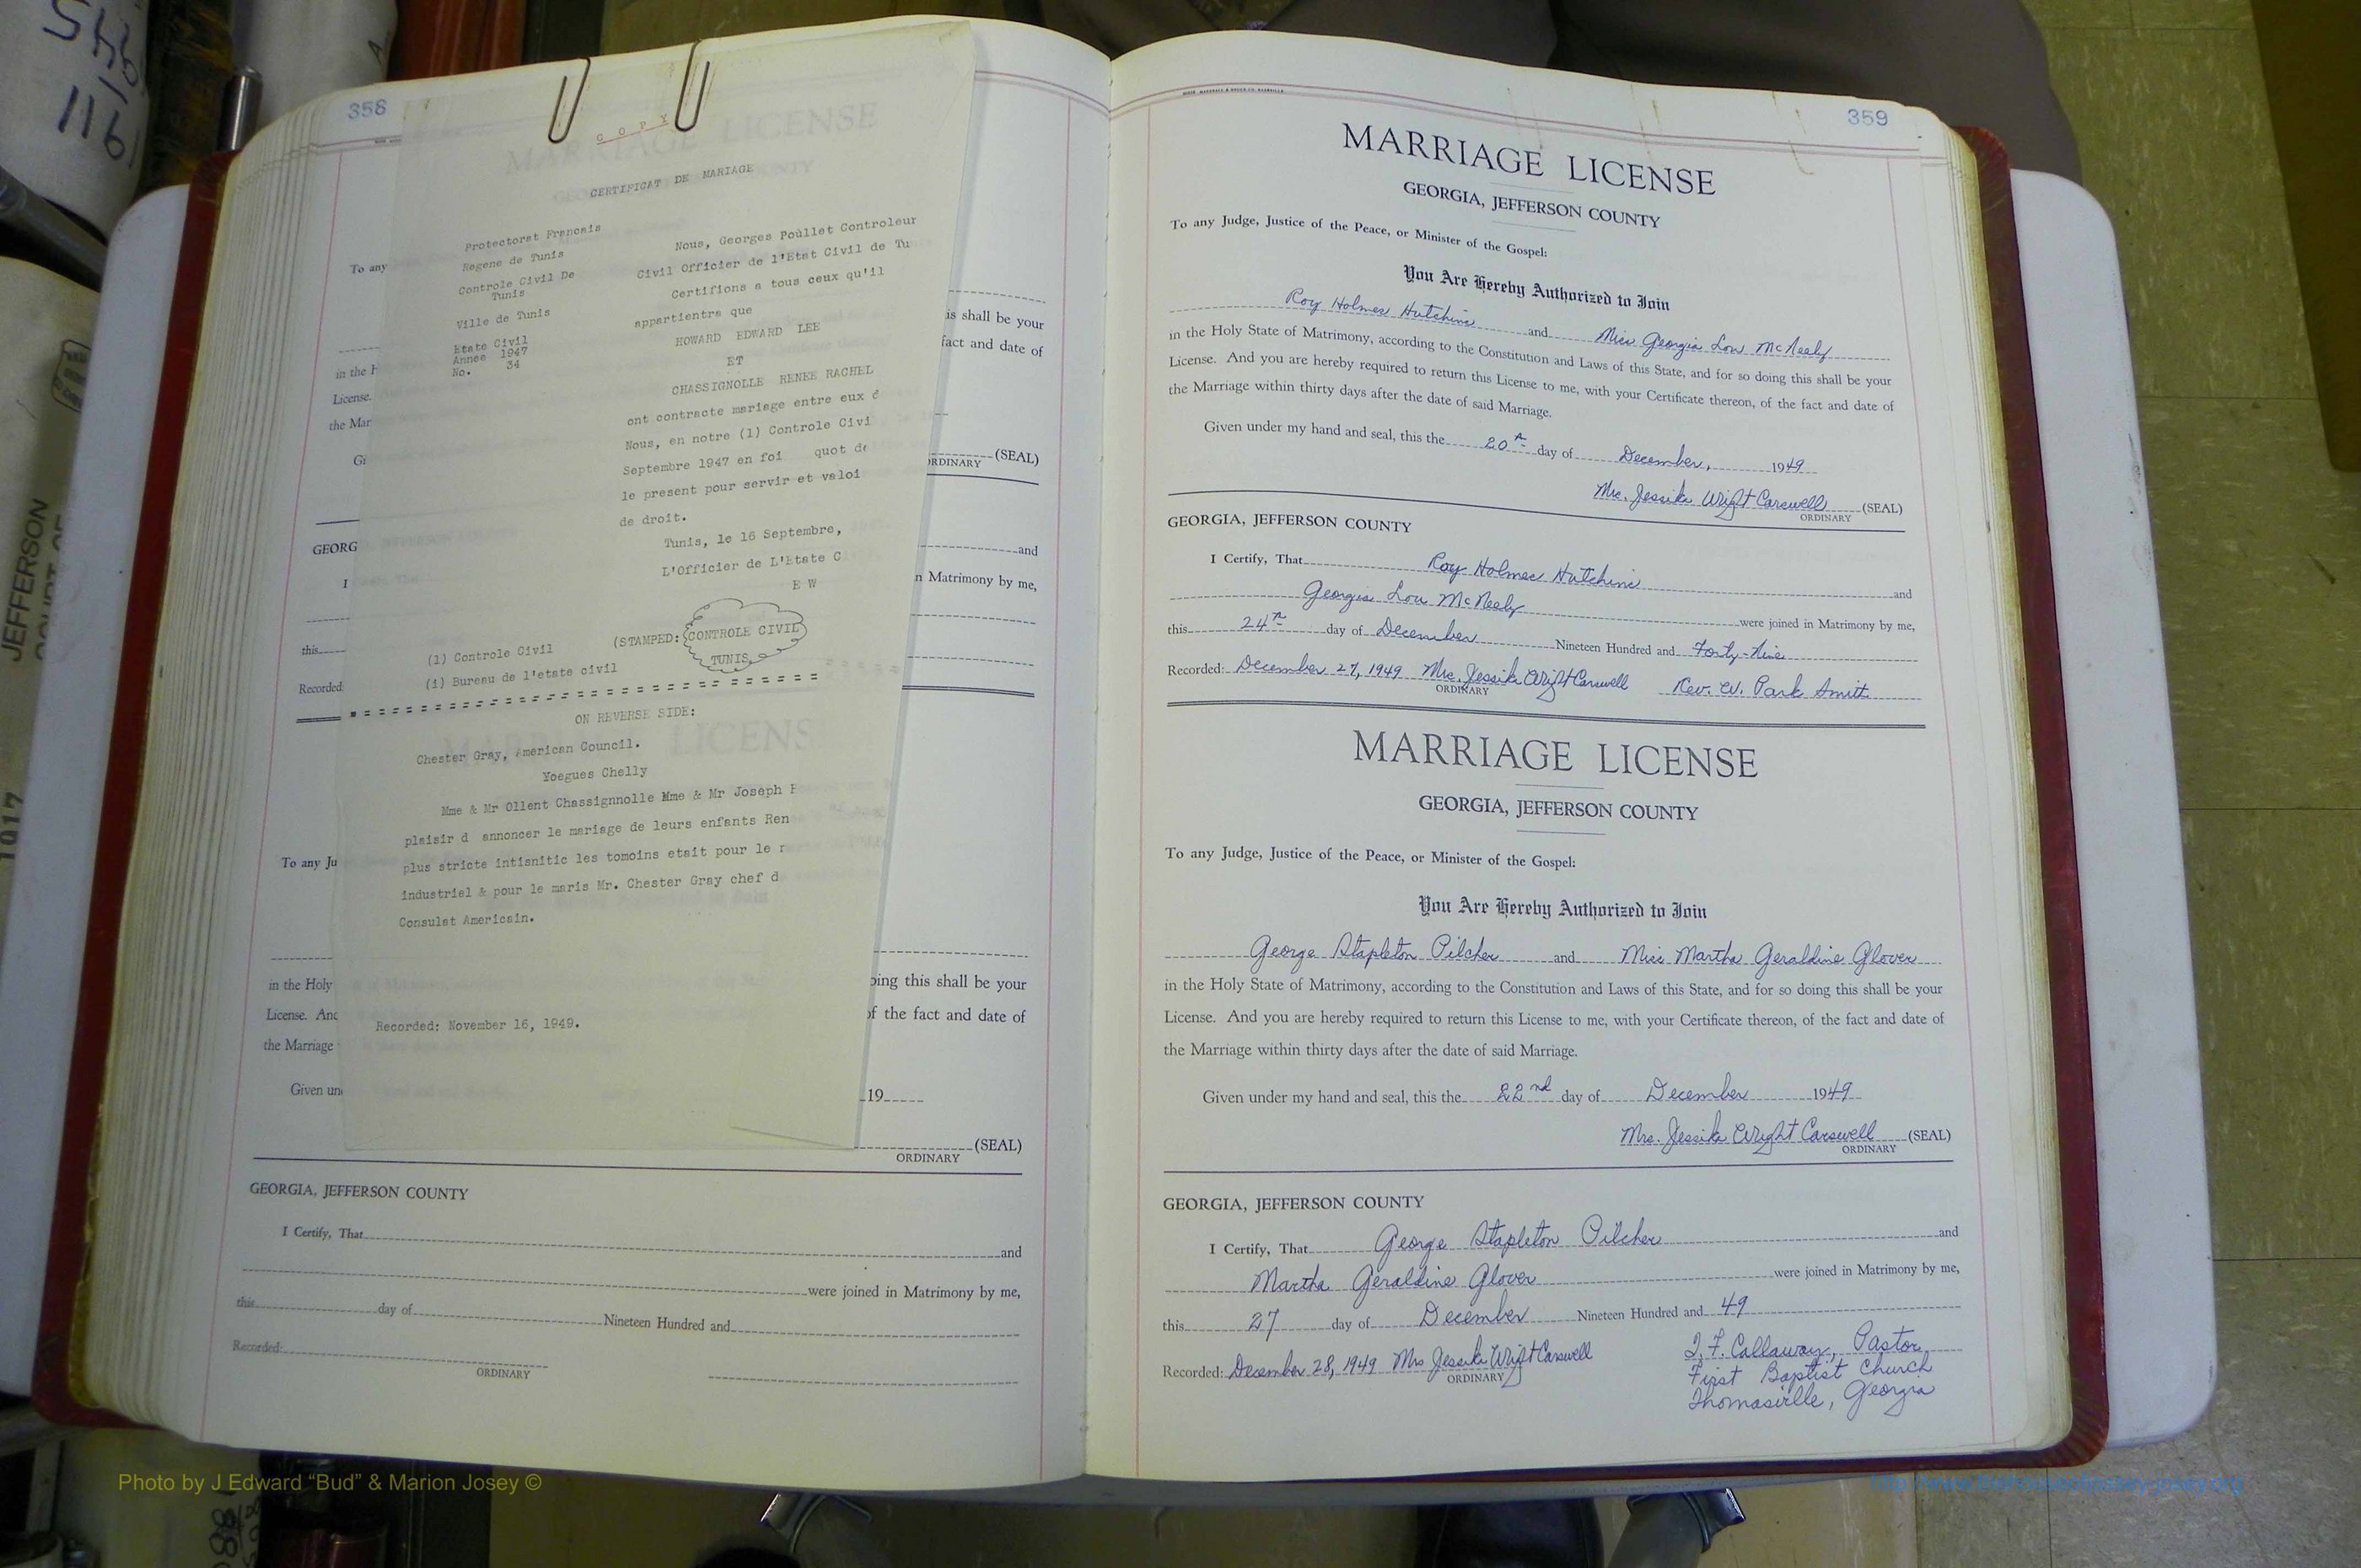 358
COPY
CERTIFICAT DE MARIAGE
Protectorat Francais
Regene de Tunis
Controle Civil De
Tunis
Ville de Tunis
Etate Civil
Annee 1947
No. 34
Nous, Georges Poullet Controleur
Civil Officier de l'Etat Civil de Tu
Certifions a tous ceux qu'il
appartientra que
HOWARD EDWARD LEE
ET
CHASSIGNOLLE RENEE RACHEL
ont contracte mariage entre eux d
Nous, en notre (1) Controle Civi
Septembre 1947 en foi quot de
le present pour servir et valoi
de droit.
Tunis, le 16 Septembre,
L'Officier de L'Etate C
E W
(STAMPED: CONTROLE CIVIL
TUNIS
(1) Controle Civil
(1) Bureau de l'etate civil
ON REVERSE SIDE:
Chester Gray, American Council.
Yoegues Chelly
Mme & Mr Ollent Chassignnolle Mme & Mr Joseph
plaisir d annoncer le mariage de leurs enfants Ren
plus stricte intisnitic les tomoins etait pour le
industriel & pour le maris Mr. Chester Gray chef d
Consulat Americain.
Recorded: November 16, 1949.
To any
is shall be your
in the H
fact and date of
License.
the Mar
Gi
(SEAL)
ORDINARY
GEORG
and
I
n Matrimony by me,
this
Recorded:
To any Ju
in the Holy
oing this shall be your
License. And
of the fact and date of
the Marriage
Given un
19
(SEAL)
ORDINARY
GEORGIA, JEFFERSON COUNTY
I Certify, That
and
were joined in Matrimony by me,
this day of Nineteen Hundred and
Recorded:
ORDINARY
359
MARRIAGE LICENSE
GEORGIA, JEFFERSON COUNTY
To any Judge, Justice of the Peace, or Minister of the Gospel:
You Are Hereby Authorized to Join
Roy Holmes Hutchins and Miss Georgia Lou McNeely
in the Holy State of Matrimony, according to the Constitution and Laws of this State, and for so doing this shall be your
License. And you are hereby required to return this License to me, with your Certificate thereon, of the fact and date of
the Marriage within thirty days after the date of said Marriage.
Given under my hand and seal, this the 20th day of December, 1949
Mrs. Jessike Wright Carswell (SEAL)
ORDINARY
GEORGIA, JEFFERSON COUNTY
I Certify, That Roy Holmes Hutchins and
Georgia Lou McNeely were joined in Matrimony by me,
this 24th day of December Nineteen Hundred and Forty-Nine
Recorded: December 27, 1949 Mrs. Jessike Wright Carswell Rev. W. Park Smith
ORDINARY
MARRIAGE LICENSE
GEORGIA, JEFFERSON COUNTY
To any Judge, Justice of the Peace, or Minister of the Gospel:
You Are Hereby Authorized to Join
George Stapleton Pilcher and Miss Martha Geraldine Glover
in the Holy State of Matrimony, according to the Constitution and Laws of this State, and for so doing this shall be your
License. And you are hereby required to return this License to me, with your Certificate thereon, of the fact and date of
the Marriage within thirty days after the date of said Marriage.
Given under my hand and seal, this the 22nd day of December 1949
Mrs. Jessike Wright Carswell (SEAL)
ORDINARY
GEORGIA, JEFFERSON COUNTY
I Certify, That George Stapleton Pilcher and
Martha Geraldine Glover were joined in Matrimony by me,
this 27 day of December Nineteen Hundred and 49
Recorded: December 28, 1949 Mrs Jessike Wright Carswell
ORDINARY
T. F. Callaway, Pastor
First Baptist Church
Thomasville, Georgia
JEFFERSON
1917
116
Photo by J Edward “Bud” & Marion Josey ©